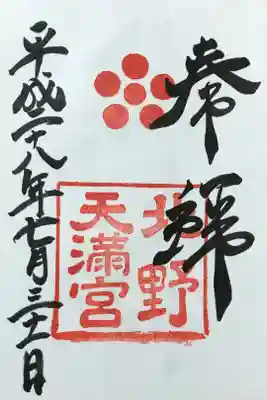 奉拜
北野
天満宮
平成二十八年七月三十一日